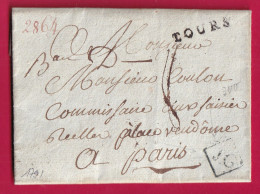 2864
TOURS
Monsieur
Monsieur Coulon
Commissaire aux saisies
réelles place vendôme
a paris
1791
G